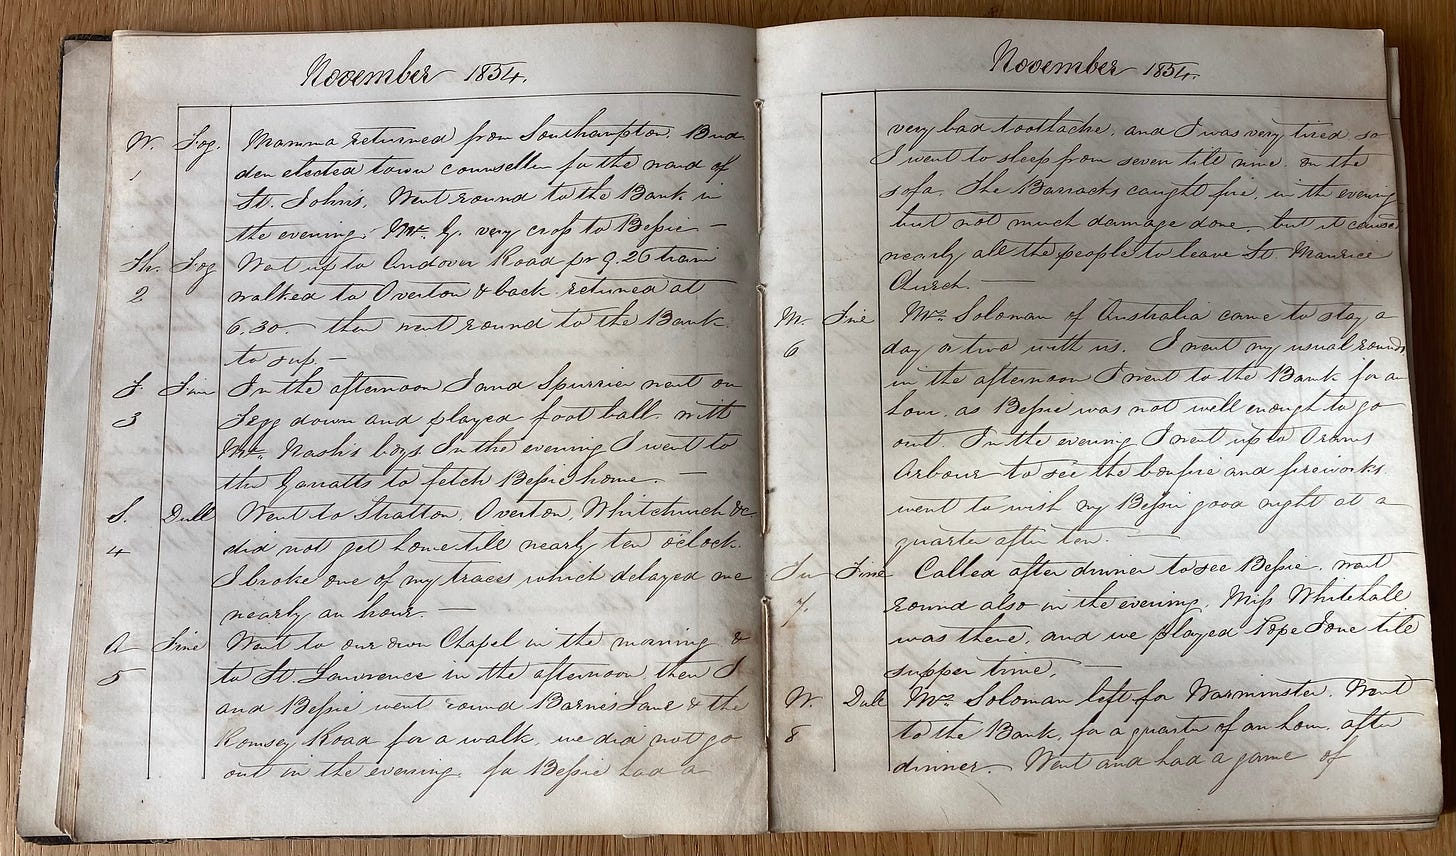 November 1854.
W. Fog. Mamma returned from Southampton. Bud
1 den elected town counsellor for the ward of
St. John's. Went round to the Bank in
the evening. Mr. G. very cross to Bessie —
Th. Fog Went up to Andover Road pr 9.20 train
2 walked to Overton & back. returned at
6.30 — then went round to the Bank
to sup —
F. Fine In the afternoon I and Spurrier went on
3 Tegg down and played foot ball with
Mr. Nash's boys In the evening I went to
the Garratts to fetch Bessie home. —
S. Dull Went to Stratton, Overton, Whitchurch &c
4 did not get home till nearly ten o'clock.
I broke one of my traces which delayed me
nearly an hour. —
Fine Went to our own Chapel in the morning &
5 to St. Lawrence in the afternoon, then I
and Bessie went round Barnes Lane & the
Romsey Road for a walk, we did not go
out in the evening for Bessie had a
November 1854.
very bad toothache, and I was very tired so
I went to sleep from seven till nine on the
sofa. The Barracks caught fire, in the evening
but not much damage done, but it caused
nearly all the people to leave St. Maurice
Church. —
M. Fine Mrs. Soloman of Australia came to stay a
6 day or two with us. I went my usual rounds
in the afternoon I went to the Bank for an
hour, as Bessie was not well enough to go
out. In the evening I went up to Orams
Arbour to see the bonfire and fireworks
went to wish my Bessie good night at a
quarter after ten. —
Tu Fine Called after dinner to see Bessie. went
7. round also in the evening. Miss Whitehall
was there, and we played Pope Jone till
supper time. —
W. Dull Mrs. Soloman left for Warminster. Went
8 to the Bank for a quarter of an hour after
dinner. Went and had a game of